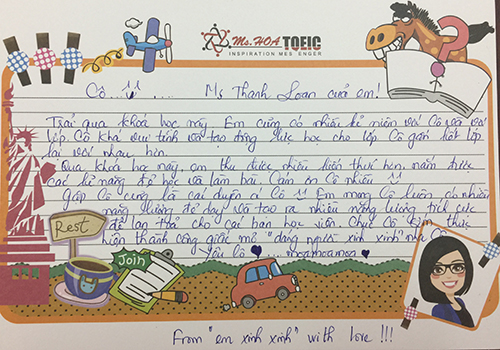 Ms. HOA TOEIC
INSPIRATION MESSENGER
Cô ơi .... Ms Thanh Loan của em!
Trải qua khoá học này, Em cũng có nhiều kỉ niệm với Cô và với
lớp. Cô khá vui tính và tạo động lực học cho lớp. Cô gắn kết lớp
lại với nhau hơn.
Qua khoá học này, em thu được nhiều kiến thức hơn, nắm được
các kĩ năng để học và làm bài. Cảm ơn Cô nhiều
Gặp Cô cũng là cái duyên ạ! Cô Em mong Cô luôn có nhiều
năng lượng để dạy và tạo ra nhiều năng lượng tích cực
để lan toả cho các bạn học viên. Chúc Cô sớm thực
hiện thành công giấc mơ "dáng người xinh xinh" nha Cô
Yêu Cô moahmoahmoah
Rest
Join
From "em xinh xinh" with love !!!